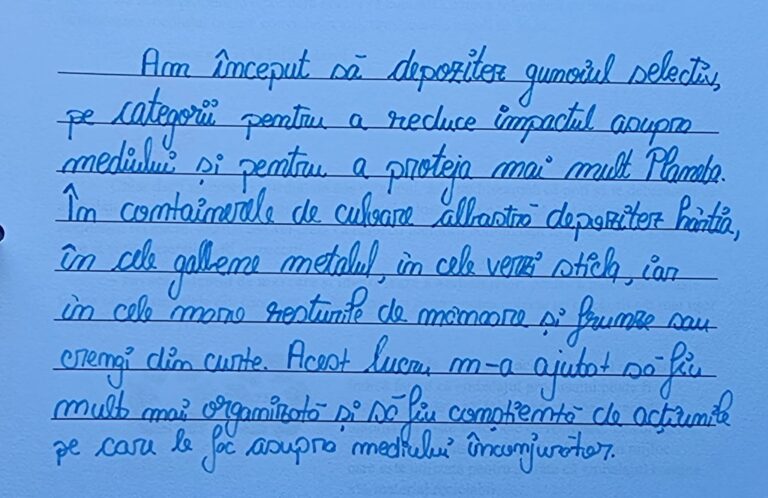 Am început să depozitez gunoiul selectiv,
pe categorii pentru a reduce impactul asupra
mediului și pentru a proteja mai mult Planeta.
În containerele de culoare albastră depozitez hârtia,
în cele galbene metalul, în cele verzi sticla, iar
în cele maro resturile de mâncare și frunze sau
crengi din curte. Acest lucru m-a ajutat să fiu
mult mai organizată și să fiu conștientă de acțiunile
pe care le fac asupra mediului înconjurător.